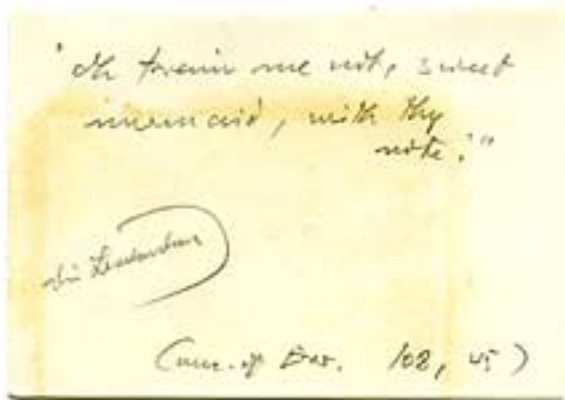 "Oh train me not, sweet
mermaid, with thy
note:"
(Com. of Err. 102, 45)